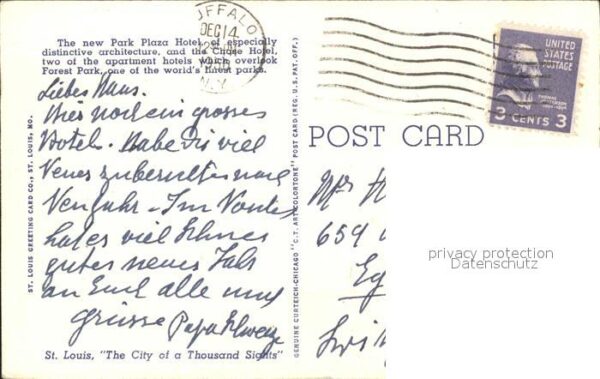 The new Park Plaza Hotel, of especially
distinctive architecture, and the Chase Hotel,
two of the apartment hotels which overlook
Forest Park, one of the world's finest parks.
BUFFALO
DEC 14
N.Y.
UNITED
STATES
POSTAGE
3 CENTS 3
Liebes Hans.
Hier noch ein grosses
Hotel. Habe viel
Neues zu berichten nach
Neujahr - Im Norden
hat es viel Schnee
gutes neues Jahr
an Euch alle und
Grüsse Papa
POST CARD
Mr H
659
Eg
Swi
privacy protection
Datenschutz
ST. LOUIS GREETING CARD CO., ST. LOUIS, MO.
GENUINE CURTEICH-CHICAGO "C.T. ART-COLORTONE" POST CARD (REG. U.S. PAT. OFF.)
St. Louis, "The City of a Thousand Sights"